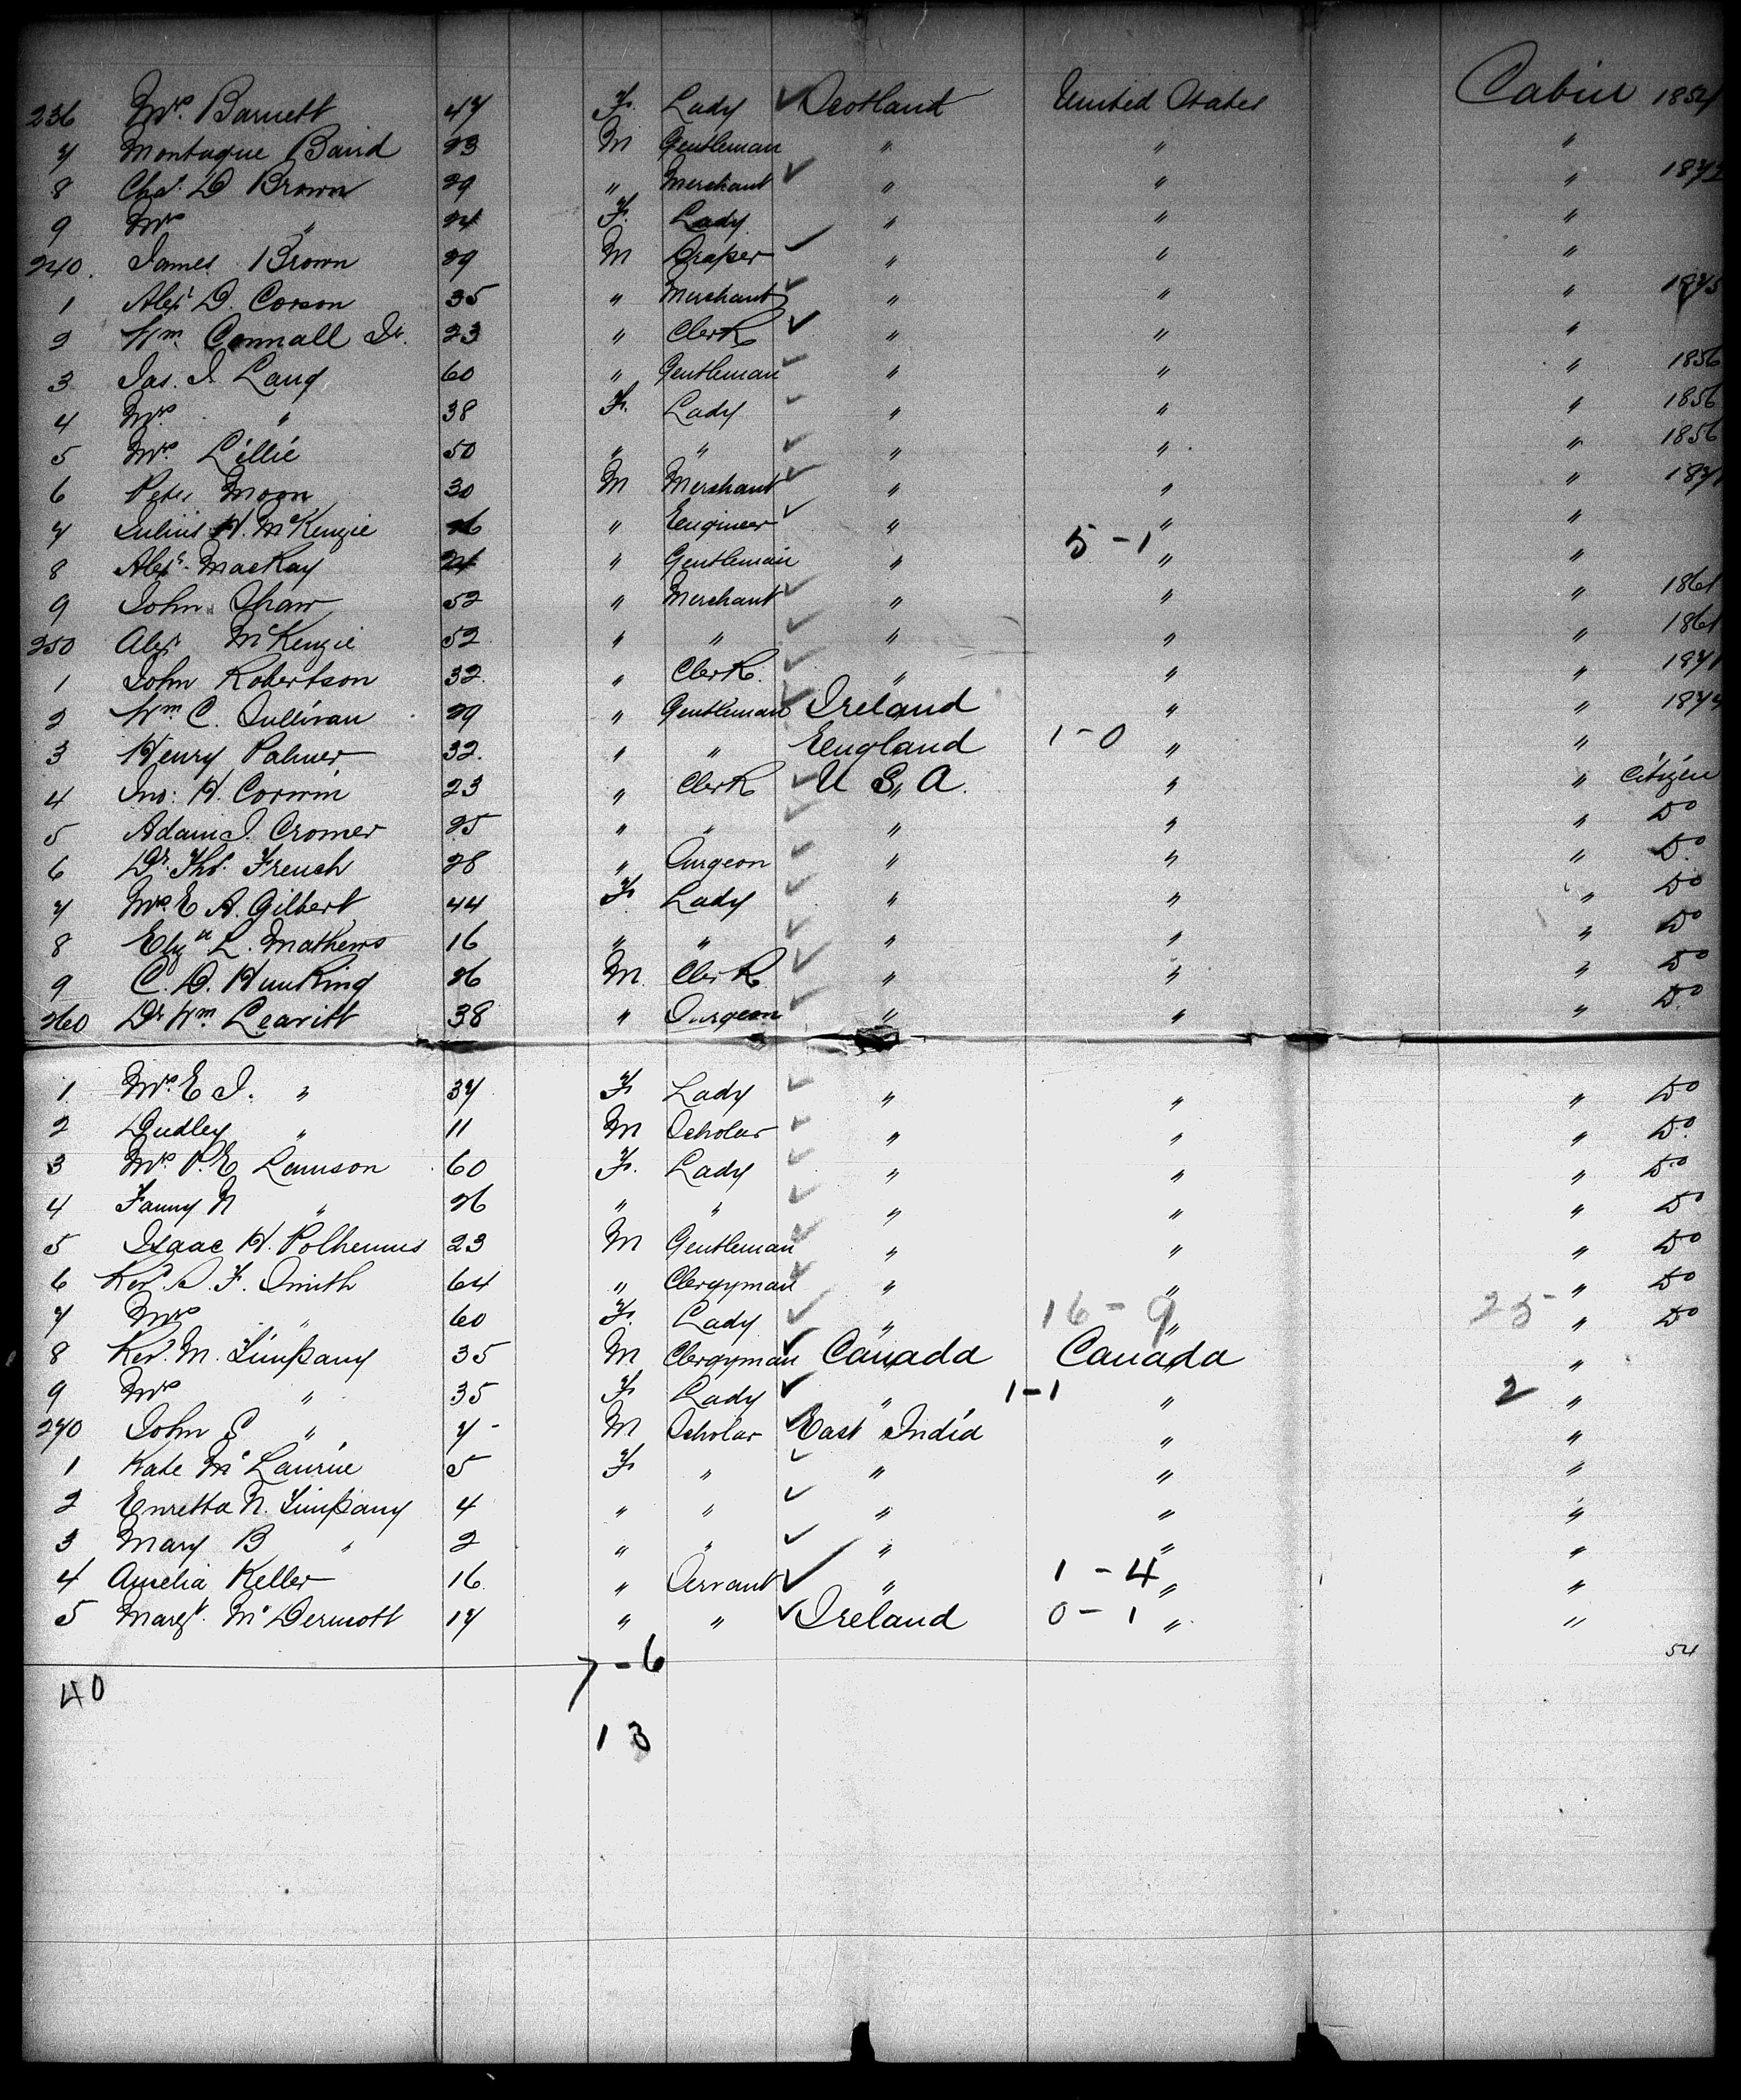 236 Mrs. Barnett 47 F. Lady ✓ Scotland United States Cabin 1854
7 Montague Baird 23 M Gentleman " " "
8 Chas. D Brown 29 " Merchant ✓ " " " 187
9 Mrs " 24 F. Lady " " "
240. James Brown 29 M Draper ✓ " " "
1 Alexr D. Corson 35 " Merchant ✓ " " " 1875
2 Wm. Connall Jr. 23 " Clerk ✓ " " "
3 Jas. J. Lang 60 " Gentleman ✓ " " " 1856
4 Mrs. " 38 F. Lady ✓ " " " 1856
5 Mrs. Lillie 50 " " ✓ " " " 1856
6 Peter Moon 30 M Merchant ✓ " " " 1871
7 Julius H. McKenzie 26 " Engineer ✓ " " "
8 Alexr. MacKay 24 " Gentleman " 5-1 " "
9 John Shaw 52 " Merchant ✓ " " " 1861
250 Alexr McKenzie 52 " " ✓ " " " 1861
1 John Robertson 32. " Clerk. ✓ " " " 1871
2 Wm. C. Sullivan 29 " Gentleman ✓ Ireland " " 187
3 Henry Palmer 32. " " England 1-0 " "
4 Jno: H. Corwin 23 " Clerk ✓ U S. A. " " Citizen
5 Adam J. Cromer 25 " " ✓ " " " Do
6 Dr. Thos. French 28 " Surgeon ✓ " " " Do
7 Mrs. E A. Gilbert 44 F. Lady ✓ " " " Do
8 Elizth L. Mathews 16 " " ✓ " " " Do
9 C. D. Hunking 26 M. Clerk ✓ " " " Do
260 Dr Wm. Leavitt 38 " Surgeon ✓ " " " Do
1 Mrs. E J. " 37 F. Lady ✓ " " " Do
2 Dudley " 11 M Scholar ✓ " " " Do
3 Mrs. P. E Lamson 60 F. Lady ✓ " " " Do
4 Fanny N " 26 " " ✓ " " " Do
5 Isaac H. Polhemus 23 M Gentleman ✓ " " " Do
6 Revd. S. F. Smith 64 " Clergyman ✓ " " " Do
7 Mrs " 60 F. Lady ✓ " 16-9 " 25 " Do
8 Revd. M. Timpany 35 M Clergyman ✓ Canada Canada "
9 Mrs " 35 F. Lady ✓ " 1-1 " 2 "
270 John S " 7 M Scholar ✓ East India " "
1 Kate McLaurine 5 F. " ✓ " " "
2 Enretta N. Timpany 4 " " ✓ " " "
3 Mary B " 2 " " ✓ " " "
4 Amelia Keller 16. " Servant ✓ " 1-4 " "
5 Margt. McDermott 17 " " ✓ Ireland 0-1 " "
54
7-6
40
13